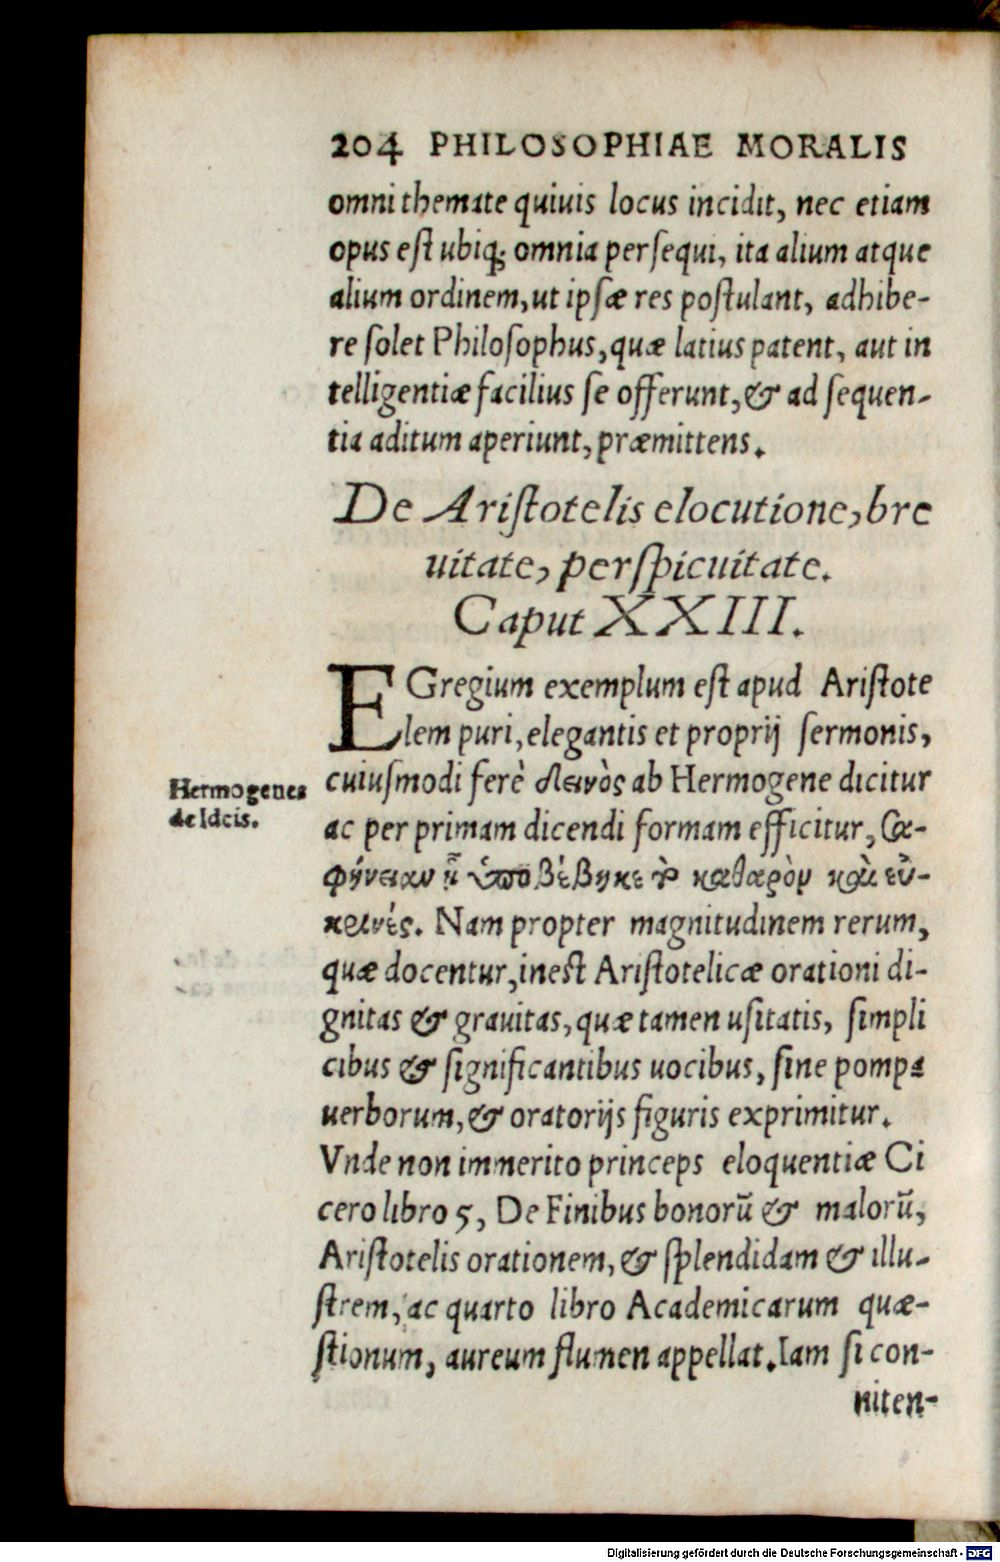 204 PHILOSOPHIAE MORALIS
omni themate quiuis locus incidit, nec etiam
opus eſt ubiq; omnia perſequi, ita alium atque
alium ordinem, ut ipſæ res poſtulant, adhibe-
re ſolet Philoſophus, quæ latius patent, aut in
telligentiæ facilius ſe offerunt, & ad ſequen-
tia aditum aperiunt, præmittens.
De Ariſtotelis elocutione, bre
uitate, perſpicuitate.
Caput XXIII.
EGregium exemplum eſt apud Ariſtote
lem puri, elegantis et proprij ſermonis,
Hermogenes
de Ideis.
cuiuſmodi ferè δεινὸς ab Hermogene dicitur
ac per primam dicendi formam efficitur, σα-
φήνειαν ᾗ ὑποβέβηκε τὸ καθαρὸν καὶ εὐ-
κρινές. Nam propter magnitudinem rerum,
quæ docentur, ineſt Ariſtotelicæ orationi di-
gnitas & grauitas, quæ tamen uſitatis, ſimpli
cibus & ſignificantibus uocibus, ſine pompa
uerborum, & oratorijs figuris exprimitur.
Vnde non immerito princeps eloquentiæ Ci
cero libro 5, De Finibus bonorũ & malorũ,
Ariſtotelis orationem, & ſplendidam & illu-
ſtrem, ac quarto libro Academicarum quæ-
ſtionum, aureum flumen appellat. Iam ſi con-
niten-
Digitalisierung gefördert durch die Deutsche Forschungsgemeinschaft - DFG